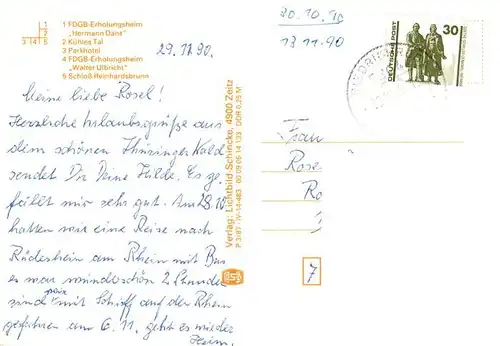 1
2
3 4 5
1 FDGB-Erholungsheim
„Hermann Danz"
2 Kühles Tal
3 Parkhotel
4 FDGB-Erholungsheim
„Walter Ulbricht"
5 Schloß Reinhardsbrunn
29.11.90.
Meine liebe Rosel!
Herzliche Urlaubsgrüße aus
dem schönen Thüringer Wald
sendet Dir Deine Hilde. Es ge-
fällt mir sehr gut. Am 28.10
hatten wir eine Reise nach
Rüdesheim am Rhein mit Bus
es war wunderschön 2 Stunden
sind wir mit Schiff auf den Rhein
gefahren am 6.11. geht es wieder
Heim.
Verlag: Lichtbild-Schincke, 4900 Zeitz
P 3/87 IV-14-483 09 09 06 14 133 DDR 0,25 M
30.10.90
13 11 90
DEUTSCHE POST
30
Frau
Rose
Ro
7